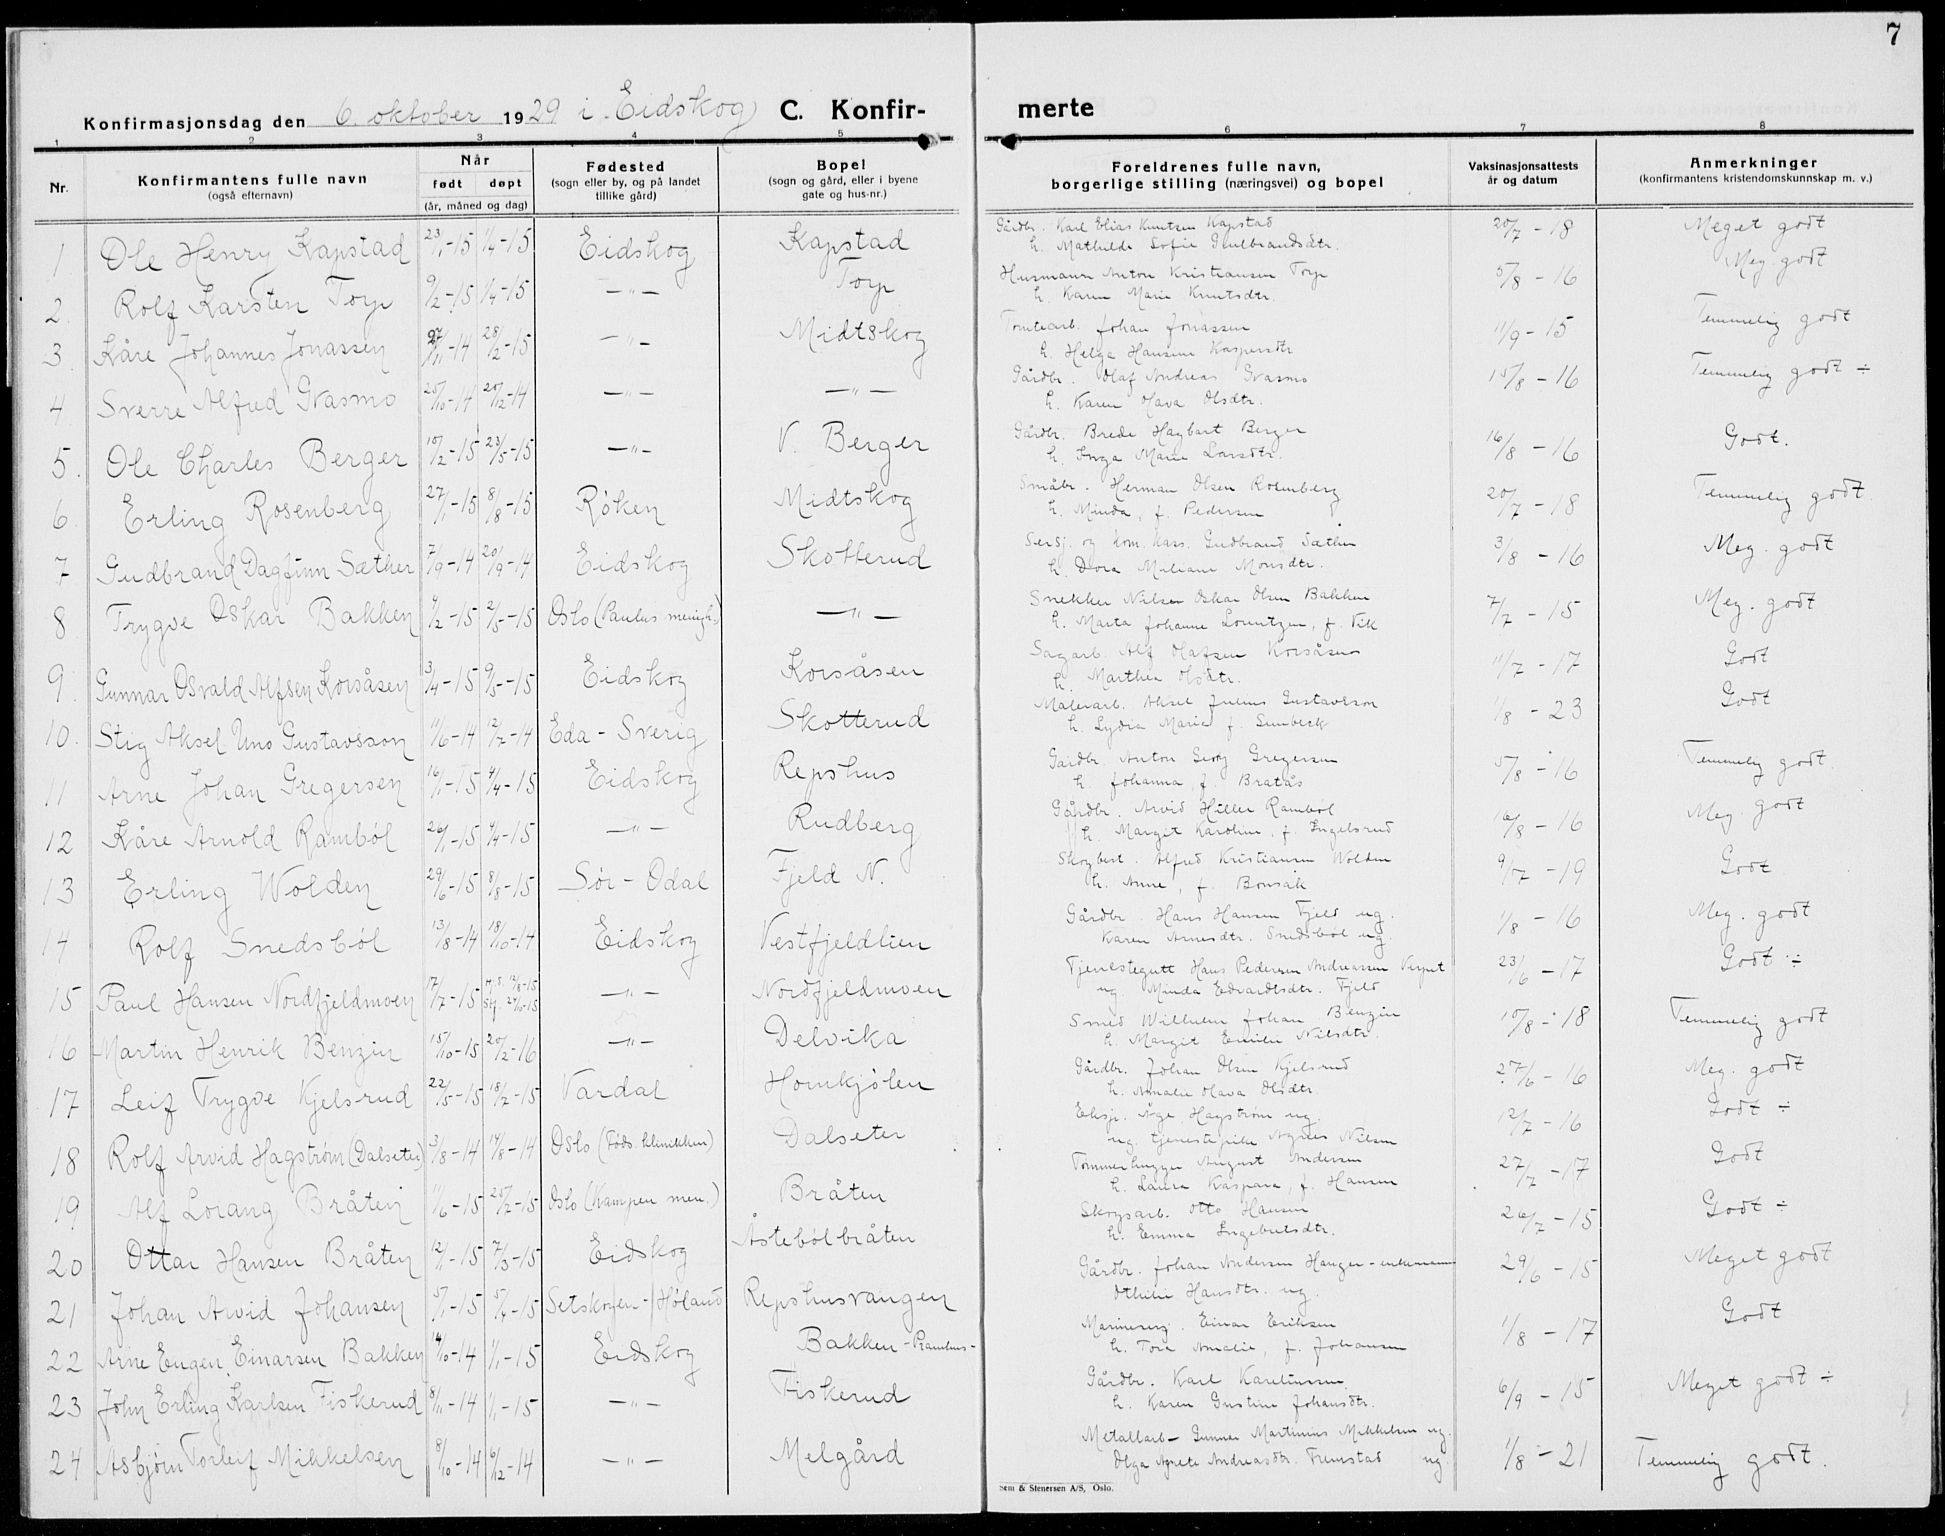 7
Konfirmasjonsdag den 6. oktober 1929 i Eidskog C. Konfirmerte
1 2 3 4 5 6 7 8
Nr. Konfirmantens fulle navn (også efternavn) Når født døpt (år, måned og dag) Fødested (sogn eller by, og på landet tillike gård) Bopel (sogn og gård, eller i byene gate og hus-nr.) Foreldrenes fulle navn, borgerlige stilling (næringsvei) og bopel Vaksinasjonsattests år og datum Anmerkninger (konfirmantens kristendomskunnskap m. v.)
1 Ole Henry Kapstad 23/1-15 1/4-15 Eidskog Kapstad Gårdbr. Karl Elias Knutsen Kapstad 20/7-18 Meget godt
h. Mathilde Sofie Gulbrandsdtr.
2. Rolf Karsten Torp 9/2-15 1/4-15 —"— Torp Husmann Anton Kristiansen Torp 5/8-16 Meg. godt
h. Karen Marie Knutsdtr.
3. Kåre Johannes Jonassen 27/11-14 28/2-15 —"— Midtskog Tomtearb. Johan Jonassen 11/9-15 Temmelig godt
h. Helga Hansine Kaspersdtr
4 Sverre Alfred Gvasmo 25/10-14 20/12-14 —"— —"— Gårdbr. Olaf Andreas Gvasmo 15/8-16 Temmelig godt ÷
h. Karen Olava Olsdtr.
5. Ole Charles Berger 10/2-15 23/5-15 —"— V. Berger Gårdbr. Brede Hagbart Berger 16/8-16 Godt.
h. Inga Marie Larsdtr.
6. Erling Rosenberg 27/1-15 8/8-15 Røken Midtskog Småbr. Herman Olsen Rosenberg 20/7-18 Temmelig godt
h. Minda, f. Pedersen
7 Gudbrand Dagfinn Sæther 7/9-14 20/9-14 Eidskog Skotterud Sersj. og kom.kass. Gudbrand Sæther 3/8-16 Meg. godt
h. Dora Miliane Monsdtr.
8 Trygve Oskar Bakken 4/2-15 2/5-15 Oslo (Paulus menigh.) —"— Snekker Nilsen Oskar Olsen Bakken 7/7-15 Meg. godt
h. Marta Johanne Lorentzen, f. Vik
9. Gunnar Osvald Alfsen Korsåsen 3/4-15 9/5-15 Eidskog Korsåsen Sagarb. Alf Olafsen Korsåsen 11/7-17 Godt
h. Marthea Olsdtr.
10. Stig Aksel Uno Gustavsson 11/6-14 12/7-14 Eda - Sverig Skotterud Malerarb. Aksel Julius Gustavsson 1/8-23 Godt
h. Lydia Marie f. Lunbeck
11 Arne Johan Gregersen 16/1-15 4/4-15 Eidskog Repshus Gårdbr. Anton Georg Gregersen 5/8-16 Temmelig godt.
h. Johanna, f. Bratås
12 Kåre Arnold Rambøl 26/1-15 4/4-15 —"— Rudberg Gårdbr. Arvid Hiller Rambøl 16/8-16 Meg. godt
h. Margit Karoline, f. Ingelsrud
13 Erling Wolden 29/6-15 8/8-15 Sør-Odal Fjeld N. Skogbest. Alfred Kristiansen Wolden 9/7-19 Godt
h. Anne, f. Bonsak
14 Rolf Snedsbøl 13/8-14 18/10-14 Eidskog Vestfjeldlien Gårdbr Hans Hansen Fjeld ug. 1/8-16 Meg. godt
Karen Arnesdtr. Snedsbøl ug.
15 Paul Hansen Nordfjeldmoen 17/7-15 Hj.d. 12/8-15 —"— Nordfjeldmoen Tjenestegutt Hans Pedersen Andreassen Verpet 23/6-17 Godt ÷
Stf. 24/10-15 ug. Minda Edvardsdtr. Fjeld
16 Martin Henrik Benzin 15/10-15 20/2-16 —"— Delvika Smed Wilhelm Johan Benzin 10/8-18 Temmelig godt
h. Margit Emilie Nilsdtr.
17 Leif Trygve Kjelsrud 22/5-15 18/7-15 Vardal Hornkjølen Gårdbr. Johan Olsen Kjelsrud 27/6-16 Meg. godt
h. Amalie Olava Olsdtr.
18 Rolf Arvid Hagstrøm (Dalseter) 3/8-14 14/8-14 Oslo (Føds. klinikken) Dalseter Eksp. Åge Hagstrøm ug. 12/7-16 Godt ÷
ug. tjenestepike Agnes Nilsen
19 Alf Lorang Bråten 11/6-15 25/7-15 Oslo (Kampen men.) Bråten Tømmerhugger August Andersen 27/7-17 Godt
h. Laura Kaspara, f. Hansen
20 Ottar Hansen Bråten 12/1-15 7/3-15 Eidskog Åstebølbråten Skogsarb. Otto Hansen 26/7-15 Godt ÷
h. Emma Ingebretsdtr.
21 Johan Arvid Johansen 5/1-15 5/4-15 Setskogen - Høland Repshusvangen Gårdbr. Johan Andersen Hanger - enkemann 29/6-15 Meget godt
Othilie Hansdtr. ug.
22 Arne Eugen Einarsen Bakken 14/10-14 1/1-15 Eidskog Bakken - Ramhus - Marineserg. Einar Eriksen 1/8-17 Godt
h. Tora Amalie, f. Johansen
23 John Erling Karlsen Fiskerud 8/11-14 1/1-15 —"— Fiskerud Gårdbr. Karl Karelinssen 6/9-15 Meget godt ÷
h. Karen Gustine Johansdtr.
24 Asbjørn Torleif Mikkelsen 8/10-14 6/12-14 —"— Melgård Metallarb- Gunnar Martinius Mikkelsen ug. 1/8-21 Temmelig godt.
Olga Agnete Andreasdtr. Fremstad ug.
Sem & Stenersen A/S, Oslo.